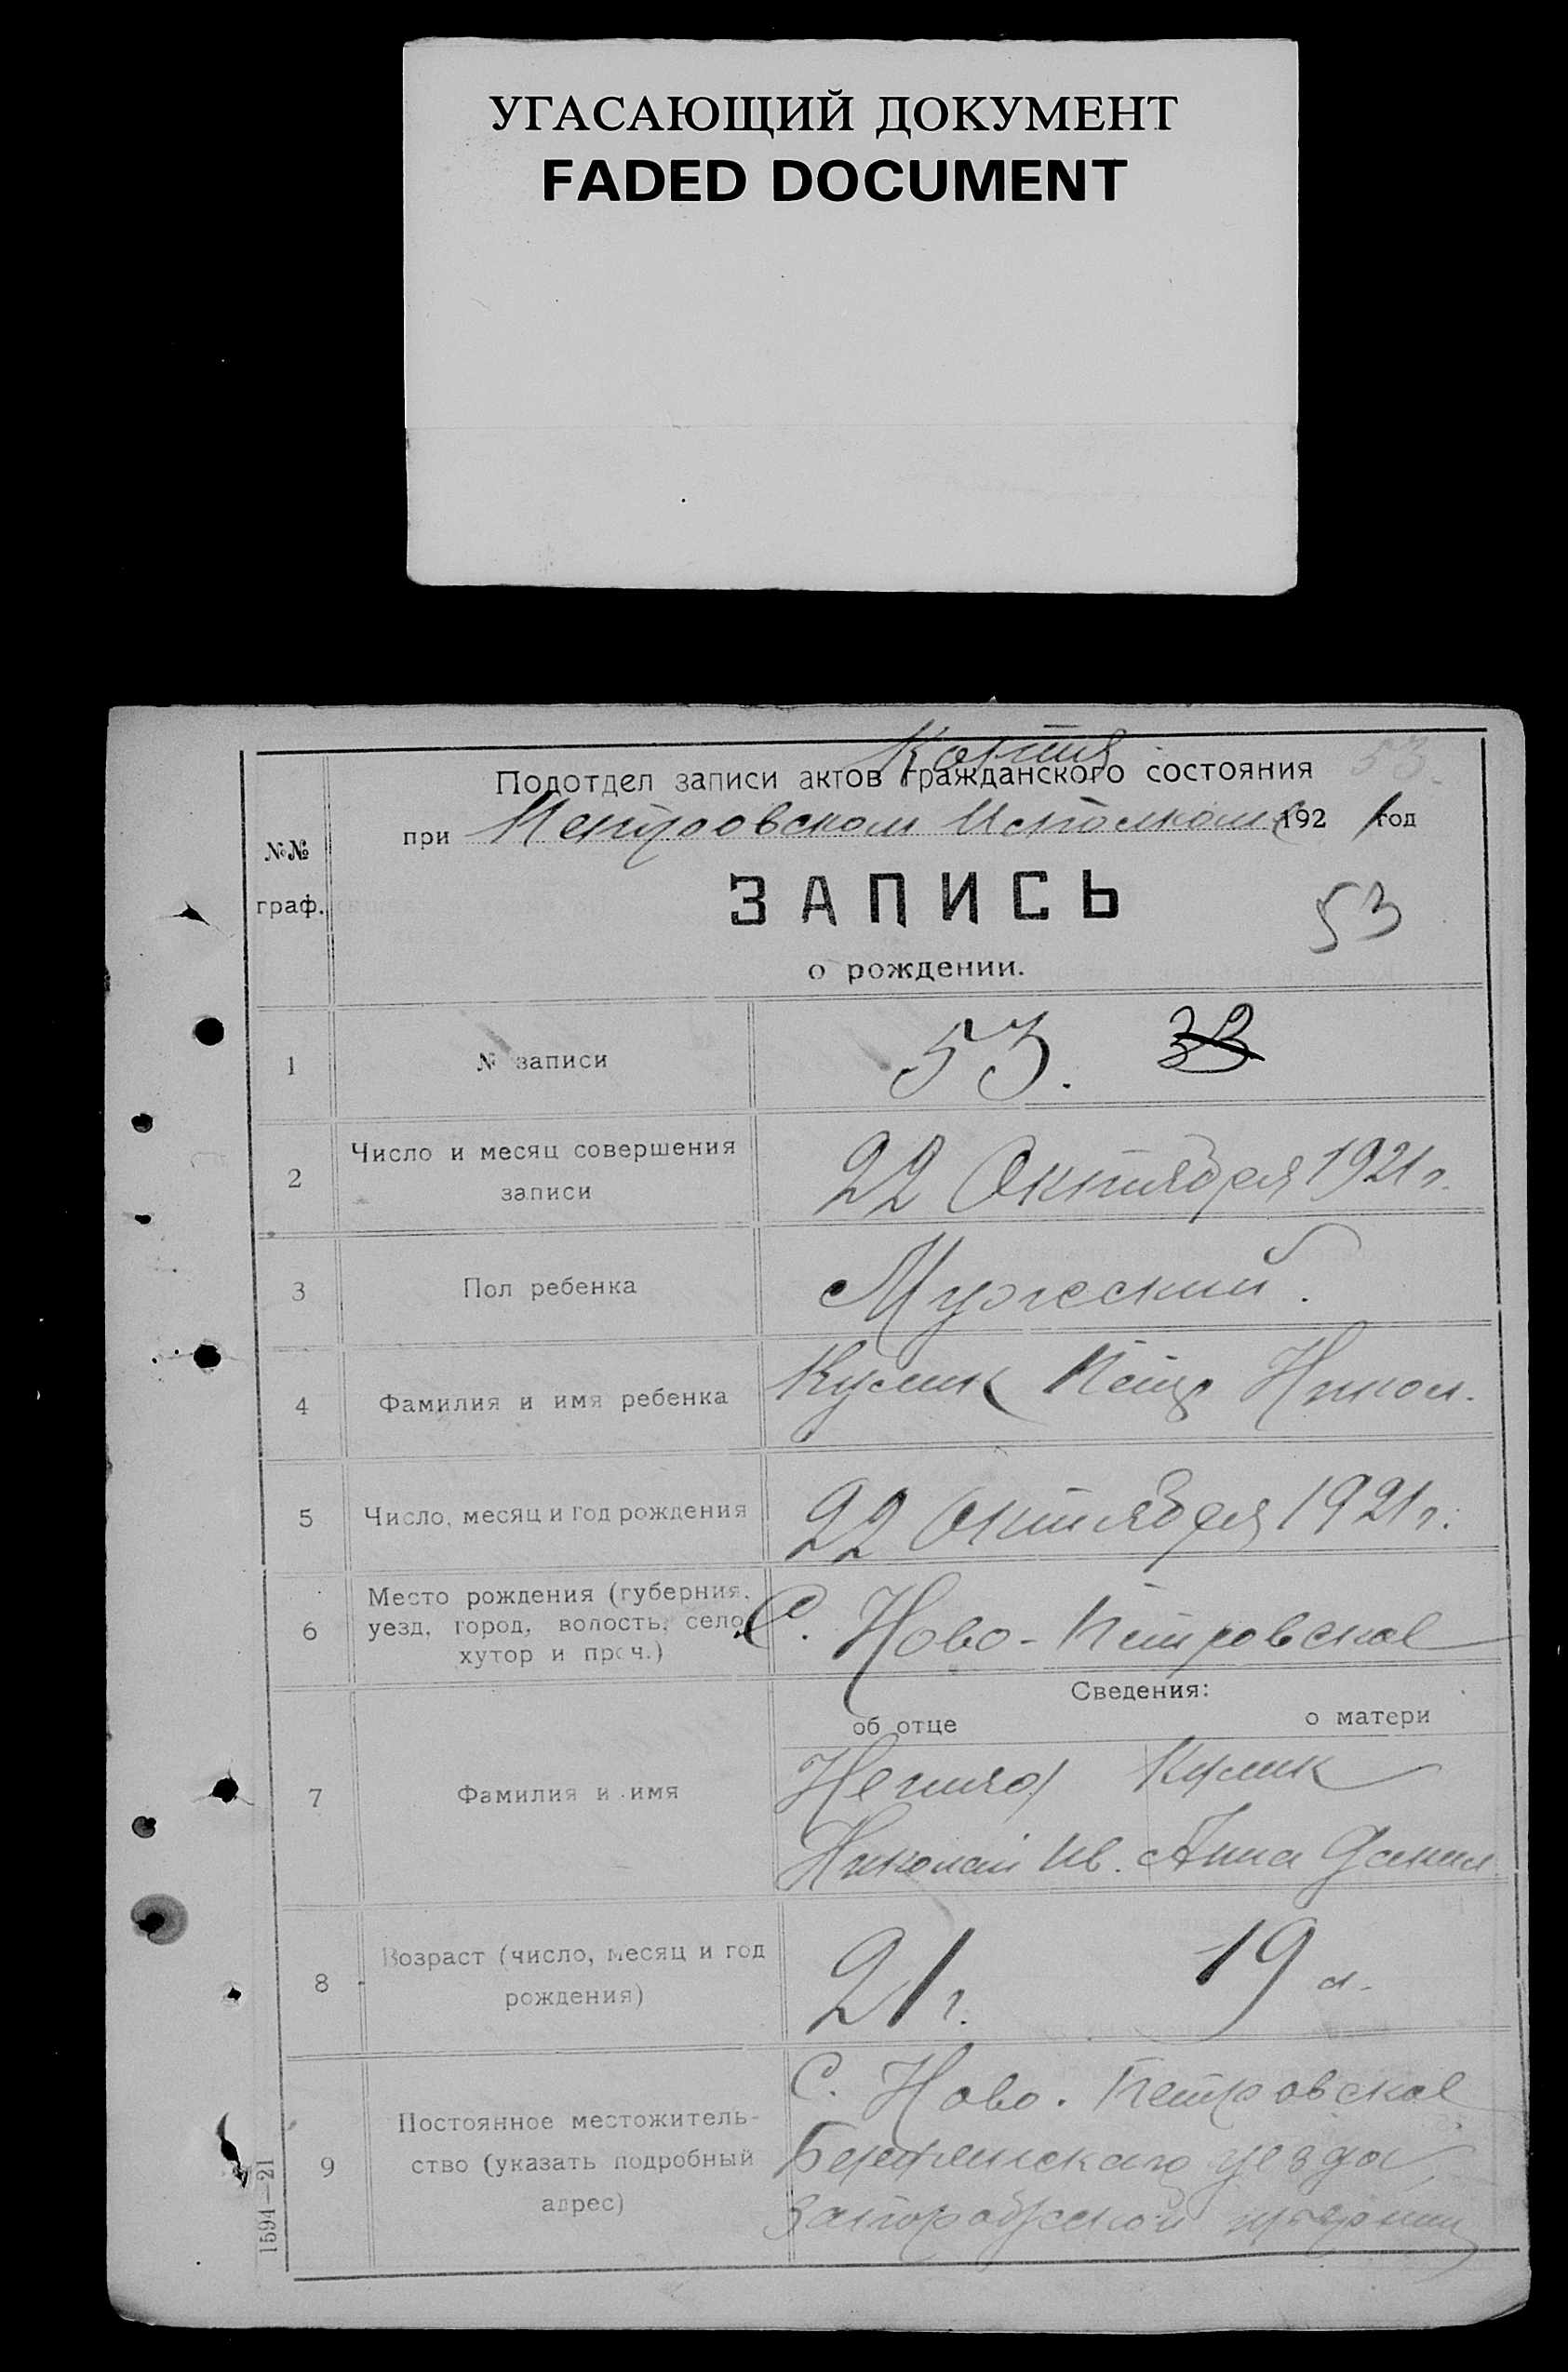 УГАСАЮЩИЙ ДОКУМЕНТ
FADED DOCUMENT
Копия
Подотдел записи актов гражданского состояния 53.
при Петровском Исполкоме 1921 год
№№ граф.
ЗАПИСЬ
53
о рождении.
1 № записи 53. 33
2 Число и месяц совершения записи 22 Октября 1921 г.
3 Пол ребенка Мужеский.
4 Фамилия и имя ребенка Кулик Петр Никол.
5 Число, месяц и год рождения 22 Октября 1921 г.
6 Место рождения (губерния, уезд, город, волость, село, хутор и проч.) С. Ново-Петровское
Сведения:
об отце о матери
7 Фамилия и имя Кулик
Николай Ив. Анна Данил.
8 Возраст (число, месяц и год рождения) 21 г. 19 л.
9 Постоянное местожительство (указать подробный адрес) С. Ново-Петровское
уезда
1594—21